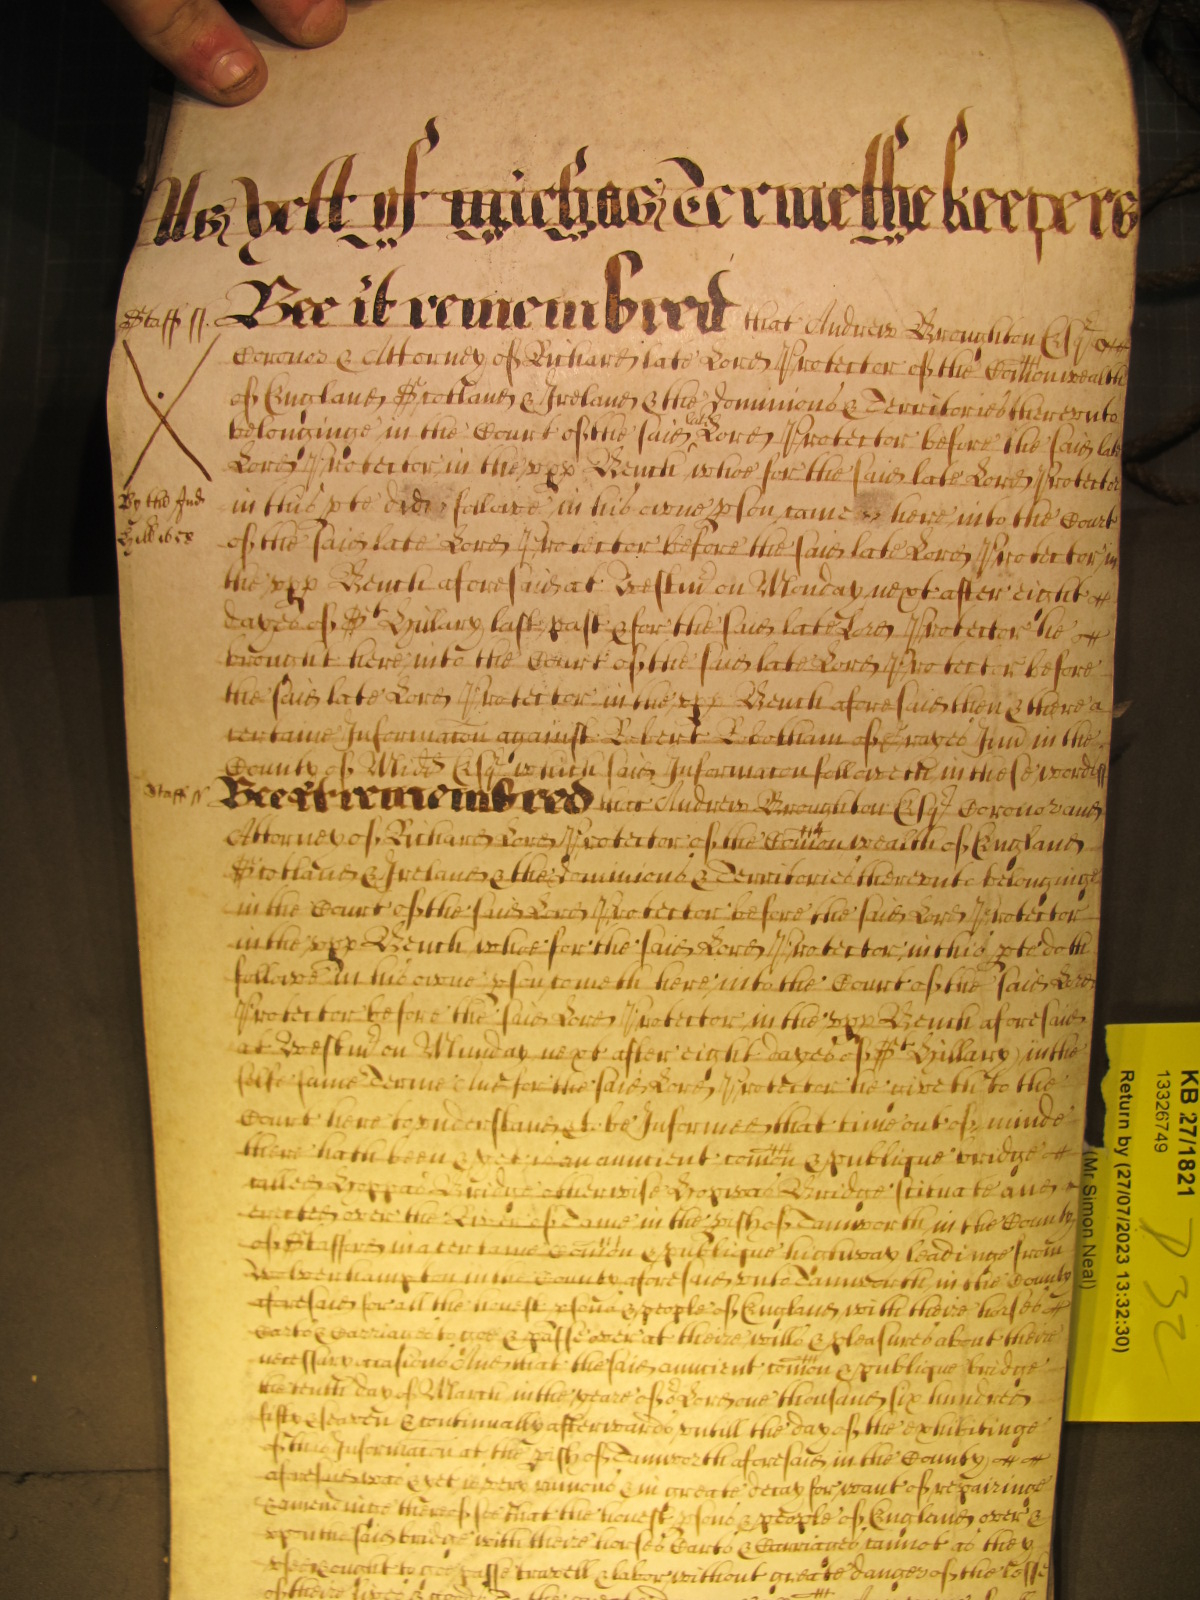 As yett of Michas Terme the keepers
Staff ss. Bee it remembred that Andrew Broughton Esqr
Coronor & Attorney of Richard late Lord Protector of the Comonwealth
of England Scotland & Ireland & the dominions & Territories therevnto
belonginge in the Court of the said late Lord Protector before the said late
Lord Protector in the vpp Bench whoe for the said late Lord Protector
in this pte did followe in his owne pson came here into the Court
of the said late Lord Protector before the said late Lord Protector in
the vpp Bench aforesaid at Westmr on Monday next after eight
dayes of St Hillary last past & for the said late Lord Protector he
brought here into the Court of the said late Lord Protector before
the said late Lord Protector in the vpp Bench aforesaid then & there a
certaine Informacon against Robert Robotham of Grayes Inn in the
County of Midd Esqr which said Informacon followeth in these words ss
By the Ind
Hill 1658
Staff ss Bee it remembred that Andrew Broughton Esqr Coronor and
Attorney of Richard Lord Protector of the Comonwealth of England
Scotland & Ireland & the dominions & Territories therevnto belonginge
in the Court of the said Lord Protector before the said Lord Protector
in the vpp Bench whoe for the said Lord Protector in this pte doth
followe in his owne pson cometh here into the Court of the said Lord
Protector before the said Lord Protector in the vpp Bench aforesaid
at Westmr on Munday next after eight dayes of St Hillary in the
selfe same Terme And for the said Lord Protector he giveth to the
Court here to vnderstand & be Informed that time out of minde
there hath been & yet is an auncient comon & publique bridge
called Hoppas Bridge otherwise Hopwas Bridge scituate and
erected over the River of Tame in the pish of Tamworth in the County
of Stafford in a certaine Comon & publique highway leadinge from
Wolverhampton in the County aforesaid vnto Tamworth in the County
aforesaid for all the honest psons & people of England with there horses
Carts & Carriages to goe & passe over at theire wills & pleasures about theire
necessary occasions And that the said auncient comon & publique bridge
the tenth day of March in the yeare of or Lord one thousand six hundred
fifty & seaven & continually afterwards vntill the day of the exhibitinge
of this Informacon at the pish of Tamworth aforesaid in the County
aforesaid was & yet is very ruinous & in greate decay for want of repairinge
& amendinge thereof soe that the honest psons & people of England over &
vpon the said bridge with there horses Carts & Carriages cannot as they
vsed & ought to goe passe travell & labor without greate danger of the losse
of theire lives & goods To the
KB 27/1821
13326749
(Mr Simon Neal)
Return by (27/07/2023 13:32:30)
P 32